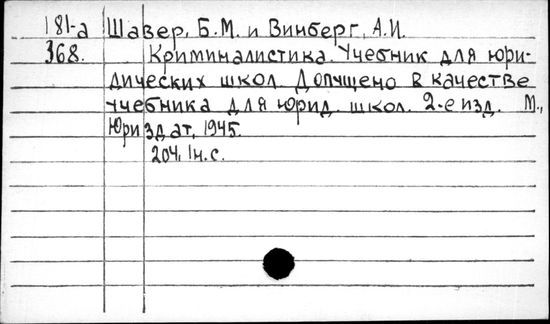 181-а Шавер, Б.М. и Винберг, А.И.
368. Криминалистика. Учебник для юри-
дических школ. Допущено в качестве
учебника для юрид. школ. 2-е изд. М.,
Юриздат, 1945.
204, 1н.с.